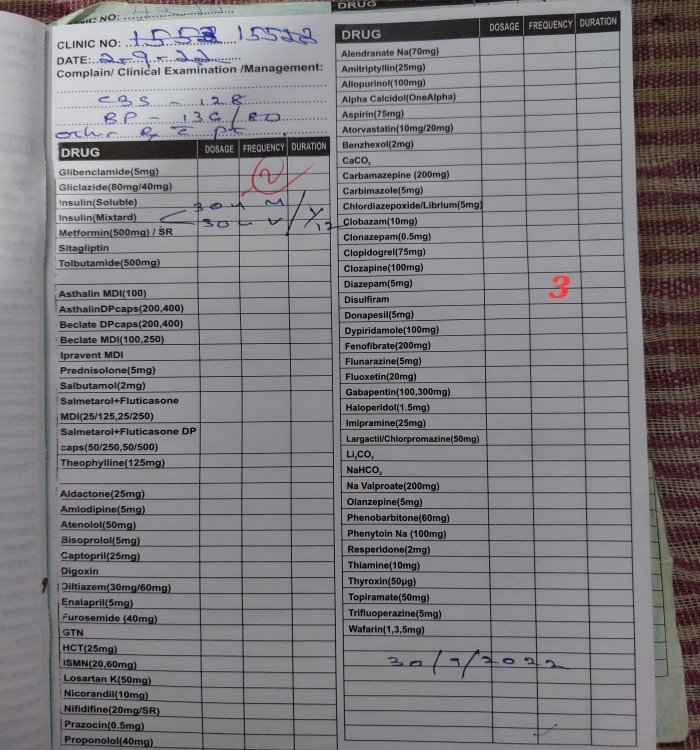 NO:
CLINIC NO: 15528
DATE: 2.9.22
Complain/ Clinical Examination /Management:
CBS - 128
BP - 130/80
DRUG DOSAGE FREQUENCY DURATION
Glibenclamide(5mg)
Gliclazide(80mg/40mg)
Insulin(Soluble) 30u M
Insulin(Mixtard) 30u V 1/12
Metformin(500mg) / SR
Sitagliptin
Tolbutamide(500mg)
Asthalin MDI(100)
AsthalinDPcaps(200,400)
Beclate DPcaps(200,400)
Beclate MDI(100,250)
Ipravent MDI
Prednisolone(5mg)
Salbutamol(2mg)
Salmetarol+Fluticasone
MDI(25/125,25/250)
Salmetarol+Fluticasone DP
caps(50/250,50/500)
Theophylline(125mg)
Aldactone(25mg)
Amlodipine(5mg)
Atenolol(50mg)
Bisoprolol(5mg)
Captopril(25mg)
Digoxin
Diltiazem(30mg/60mg)
Enalapril(5mg)
Furosemide (40mg)
GTN
HCT(25mg)
ISMN(20,60mg)
Losartan K(50mg)
Nicorandil(10mg)
Nifidifine(20mg/SR)
Prazocin(0.5mg)
Proponolol(40mg)
DRUG
DRUG DOSAGE FREQUENCY DURATION
Alendranate Na(70mg)
Amitriptyllin(25mg)
Allopurinol(100mg)
Alpha Calcidol(OneAlpha)
Aspirin(75mg)
Atorvastatin(10mg/20mg)
Benzhexol(2mg)
CaCO₃
Carbamazepine (200mg)
Carbimazole(5mg)
Chlordiazepoxide/Librium(5mg)
Clobazam(10mg)
Clonazepam(0.5mg)
Clopidogrel(75mg)
Clozapine(100mg)
Diazepam(5mg) 3
Disulfiram
Donapesil(5mg)
Dypiridamole(100mg)
Fenofibrate(200mg)
Flunarazine(5mg)
Fluoxetin(20mg)
Gabapentin(100,300mg)
Haloperidol(1.5mg)
Imipramine(25mg)
Largactil/Chlorpromazine(50mg)
Li₂CO₃
NaHCO₃
Na Valproate(200mg)
Olanzepine(5mg)
Phenobarbitone(60mg)
Phenytoin Na (100mg)
Resperidone(2mg)
Thiamine(10mg)
Thyroxin(50µg)
Topiramate(50mg)
Trifluoperazine(5mg)
Wafarin(1,3,5mg)
30/9/2022